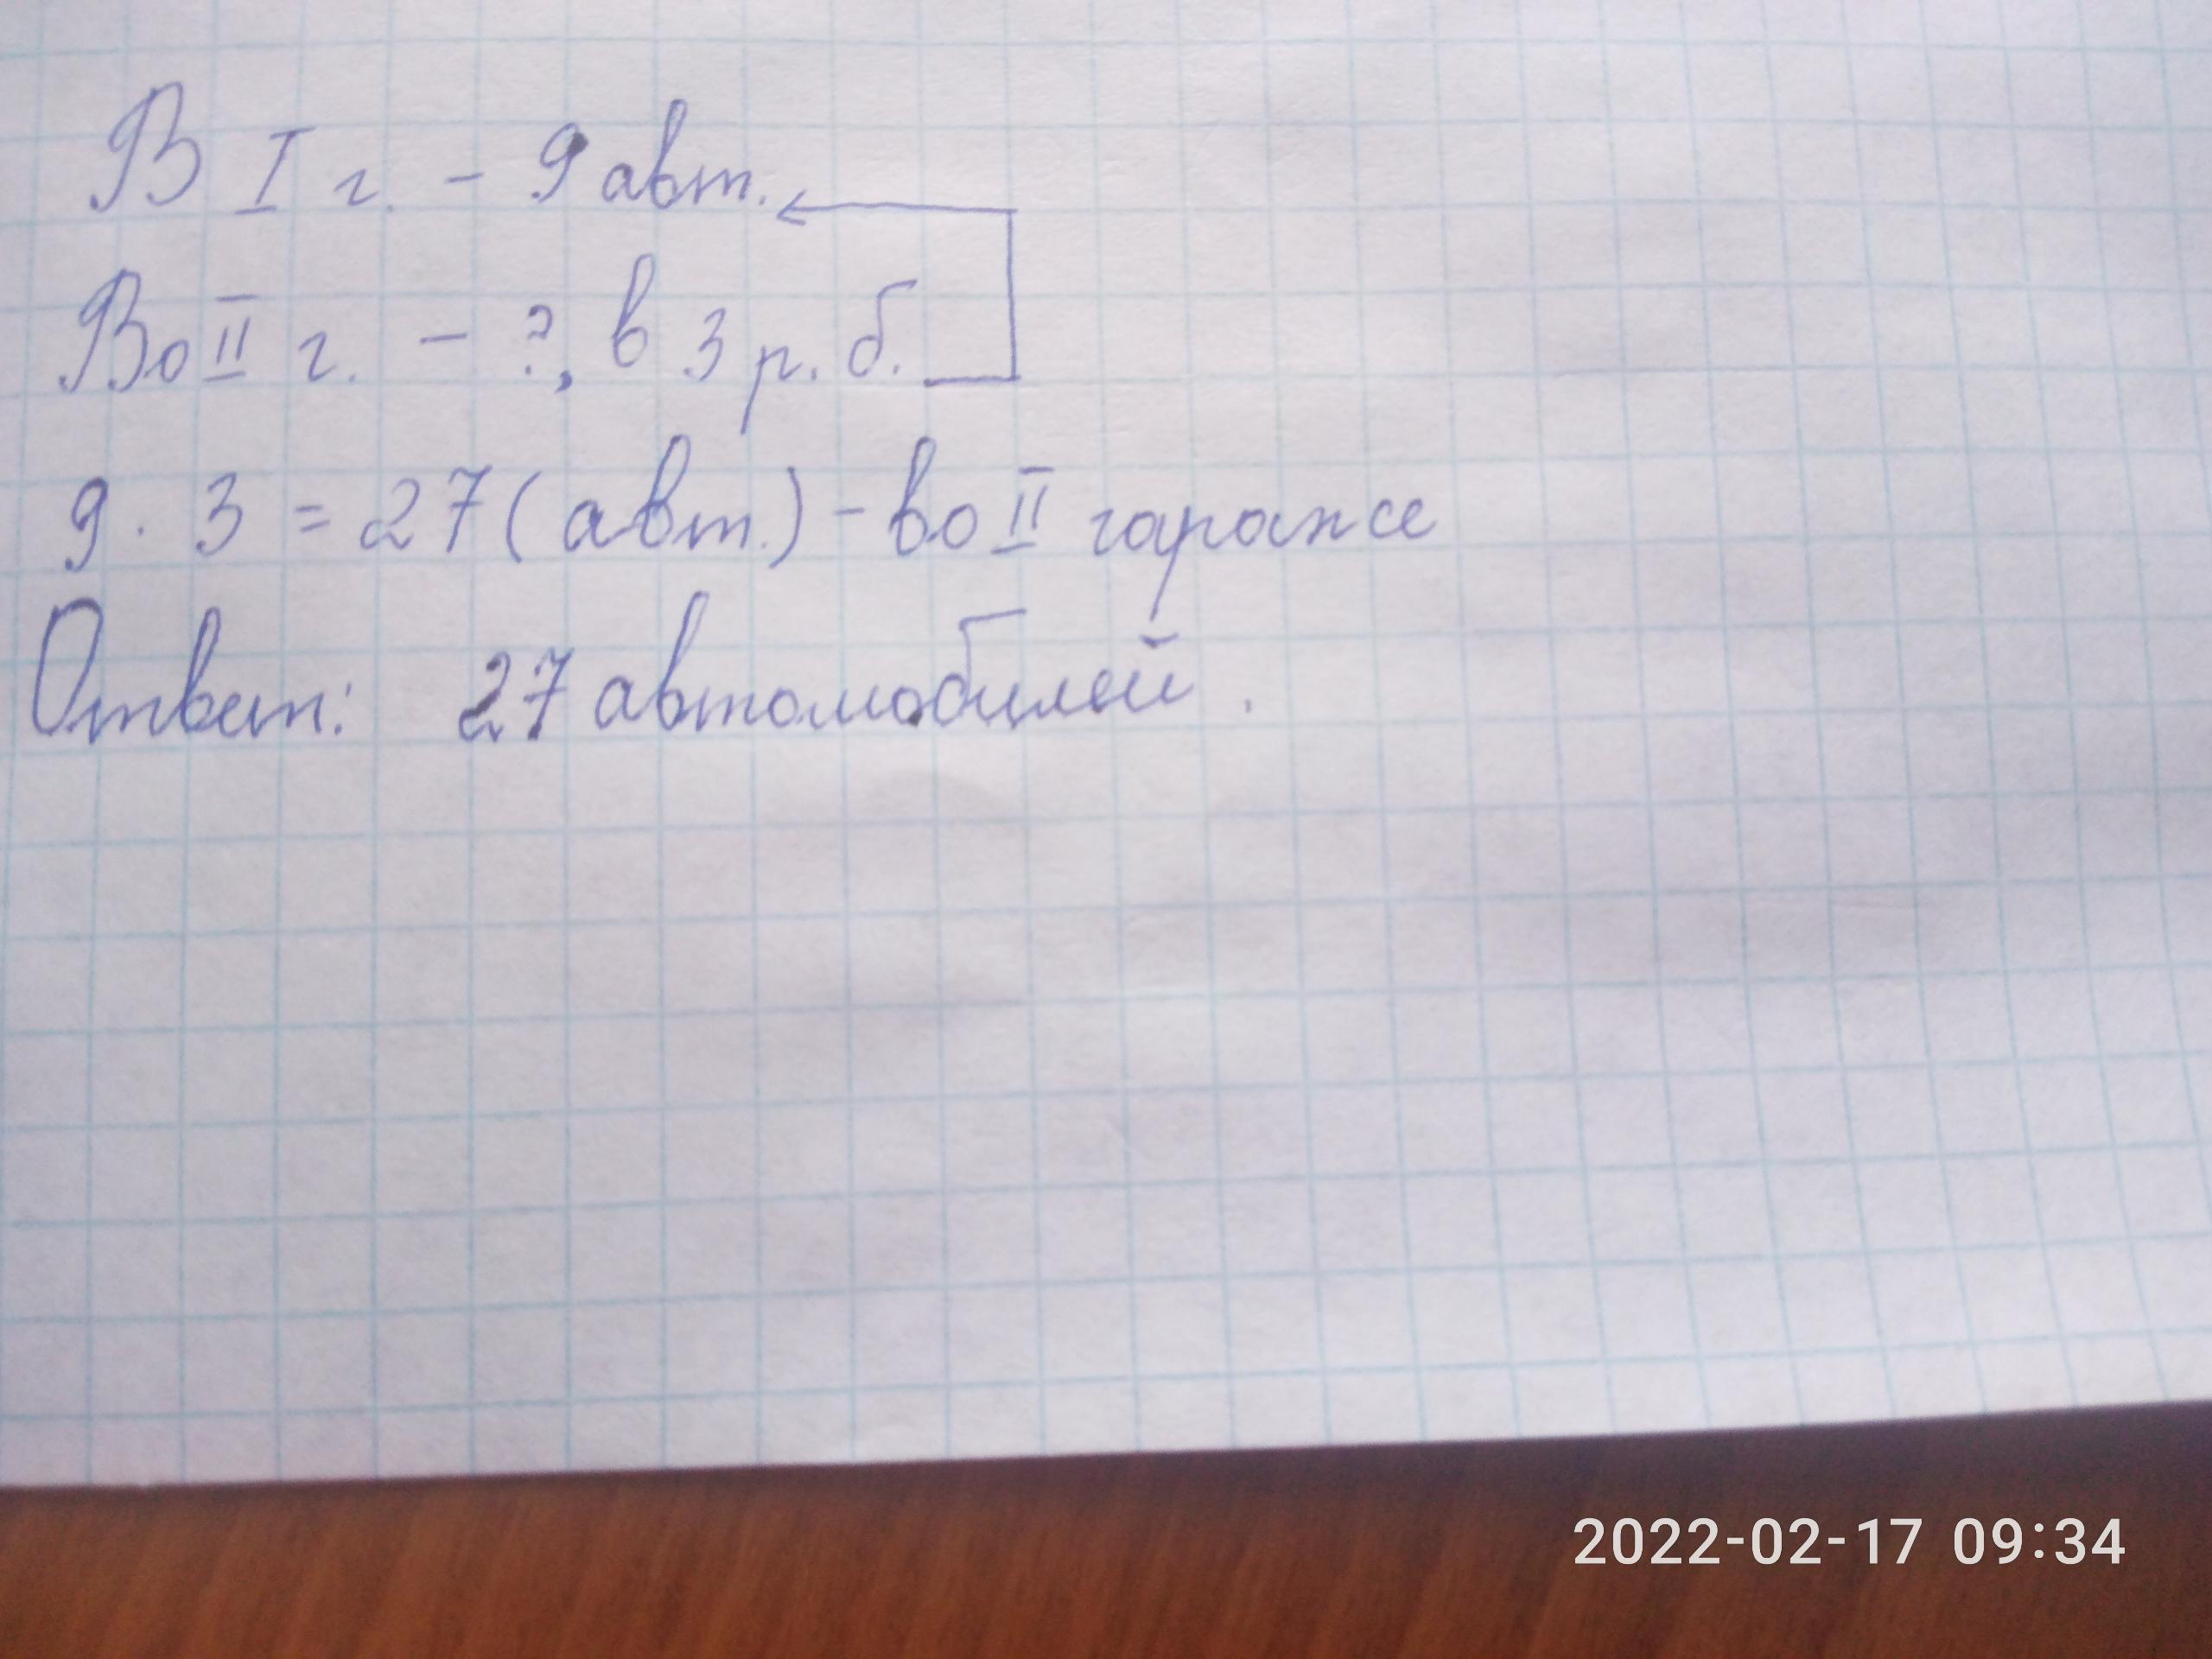 В I г. - 9 авт.
Во II г. - ?, в 3 р. б.
9 · 3 = 27 (авт.) - во II гараже
Ответ: 27 автомобилей.
2022-02-17 09:34